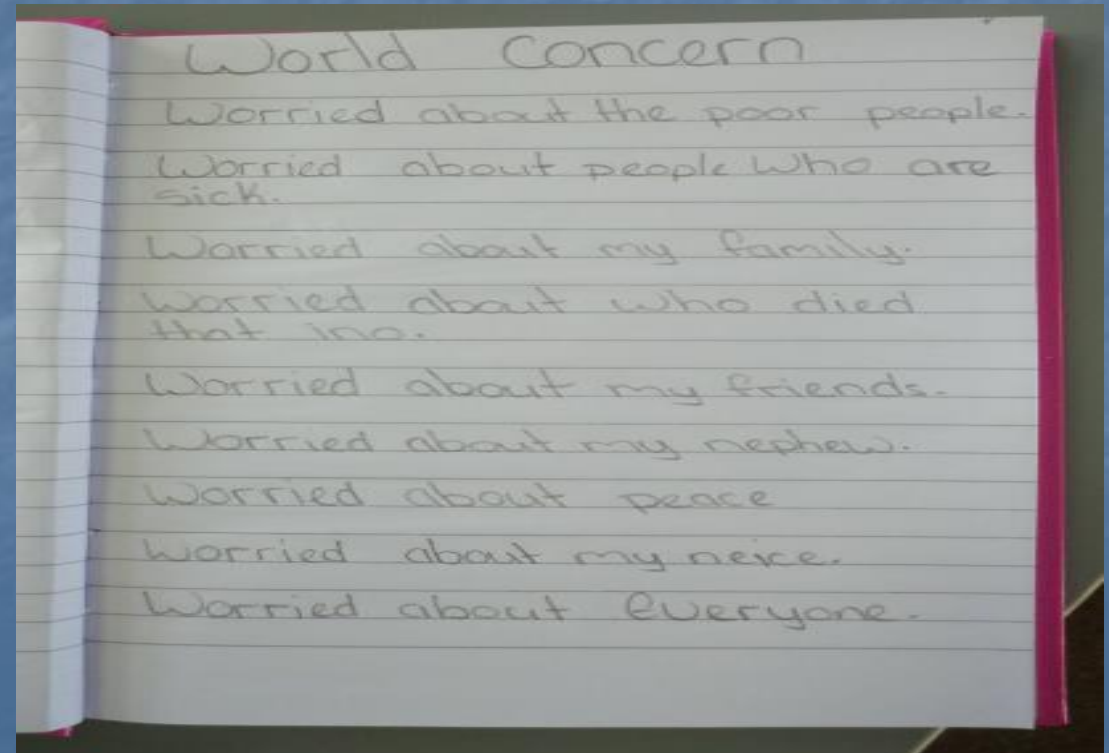 World Concern
Worried about the poor people.
Worried about people who are
sick.
Worried about my family.
Worried about who died
that ino.
Worried about my friends.
Worried about my nephew.
Worried about peace
Worried about my neice.
Worried about everyone.